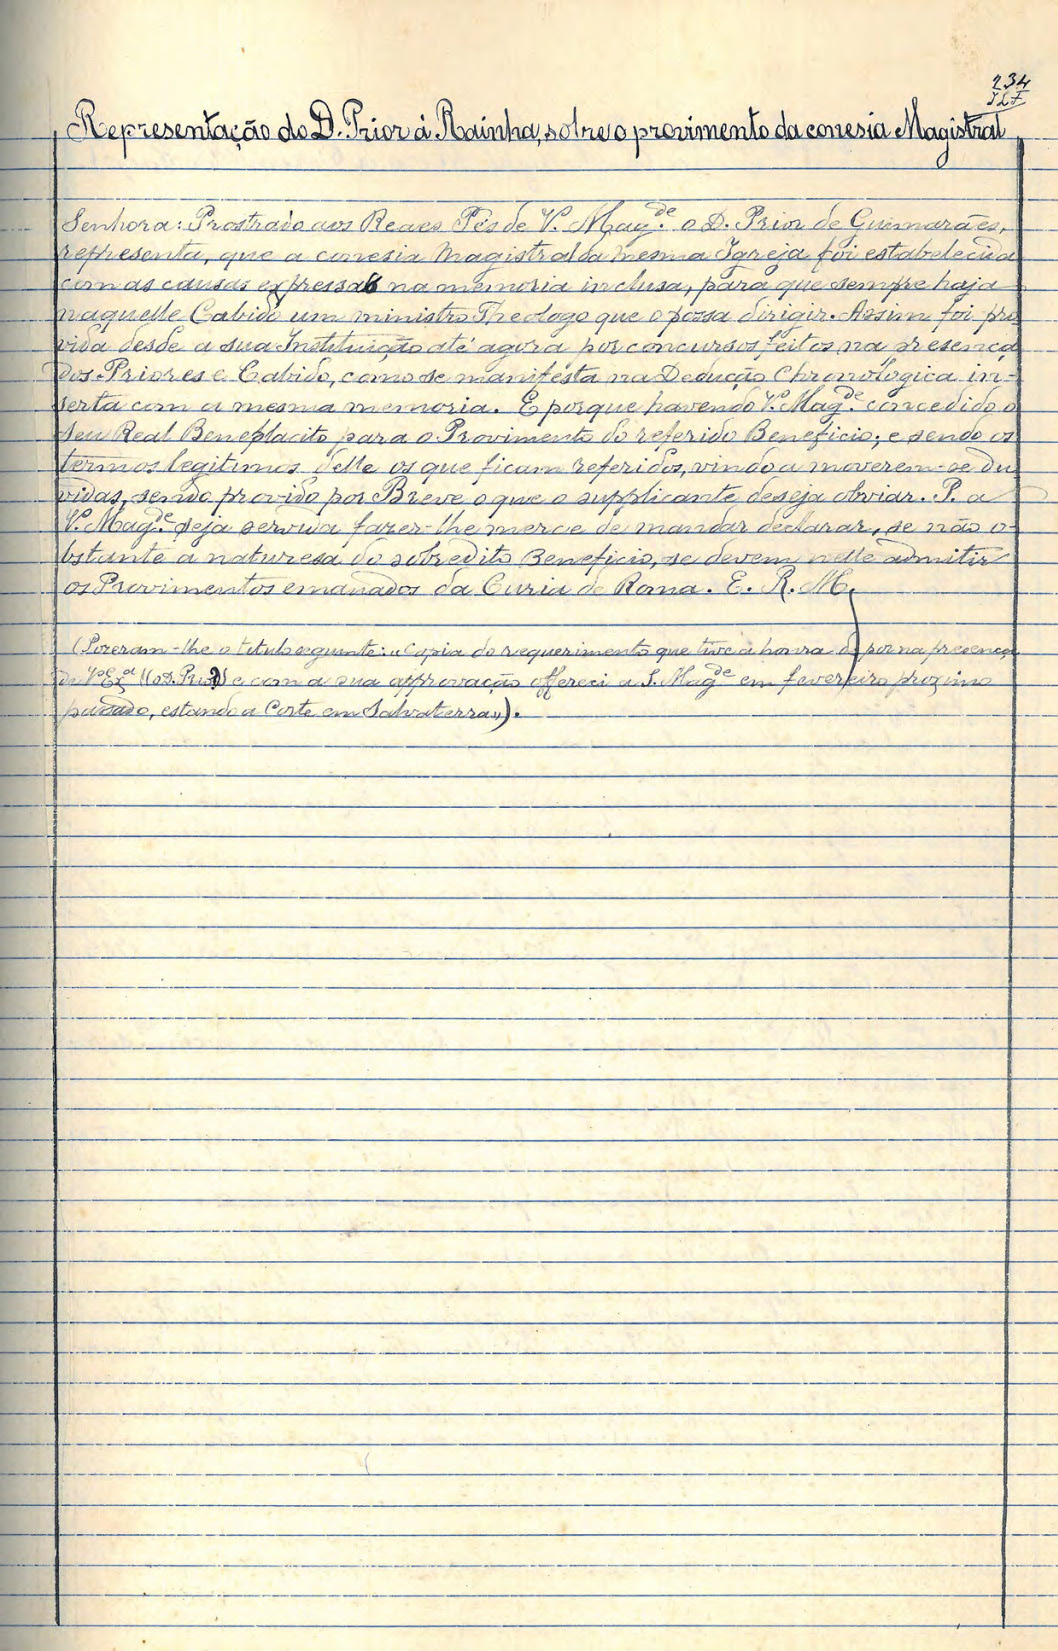 234
Representação do D. Prior á Rainha, sobre o provimento da conesia Magistral
Senhora: Prostrado aos Reaes Pés de V.ª Mag.de o D. Prior de Guimarães,
representa, que a conesia Magistral da mesma Igreja foi estabelecida
com as causas expressas na memoria inclusa, para que sempre haja
naquelle Cabido um ministro Theologo que o possa dirigir. Assim foi pro
vida desde a sua Instituição até agora por concursos feitos na presença
dos Priores e Cabido, como se manifésta na Dedução Chronologica in-
serta com a mesma memoria. E porque havendo V.ª Mag.de concedido o
seu Real Beneplacito para o Provimento do referido Beneficio; e sendo os
termos legitimos delle os que ficam referidos, vindo a moverem-se du
vidas, sendo provido por Breve o que o supplicante deseja obviar. P. a
V.ª Mag.de seja servida fazer-lhe merce de mandar declarar, se não o-
bstante a naturesa do sobredito Beneficio, se devem nelle admitir
os Provimentos emanados da Curia de Roma. E. R. M.
(Pozeram-lhe o titulo seguinte: «Copia do requerimento que tive a honra de por na presença
de V.ª Ex.ª ((o D. Prior)) e com a sua approvação offereci a S. Mag.de em fevereiro proximo
passado, estando a Corte em Salvaterra»).